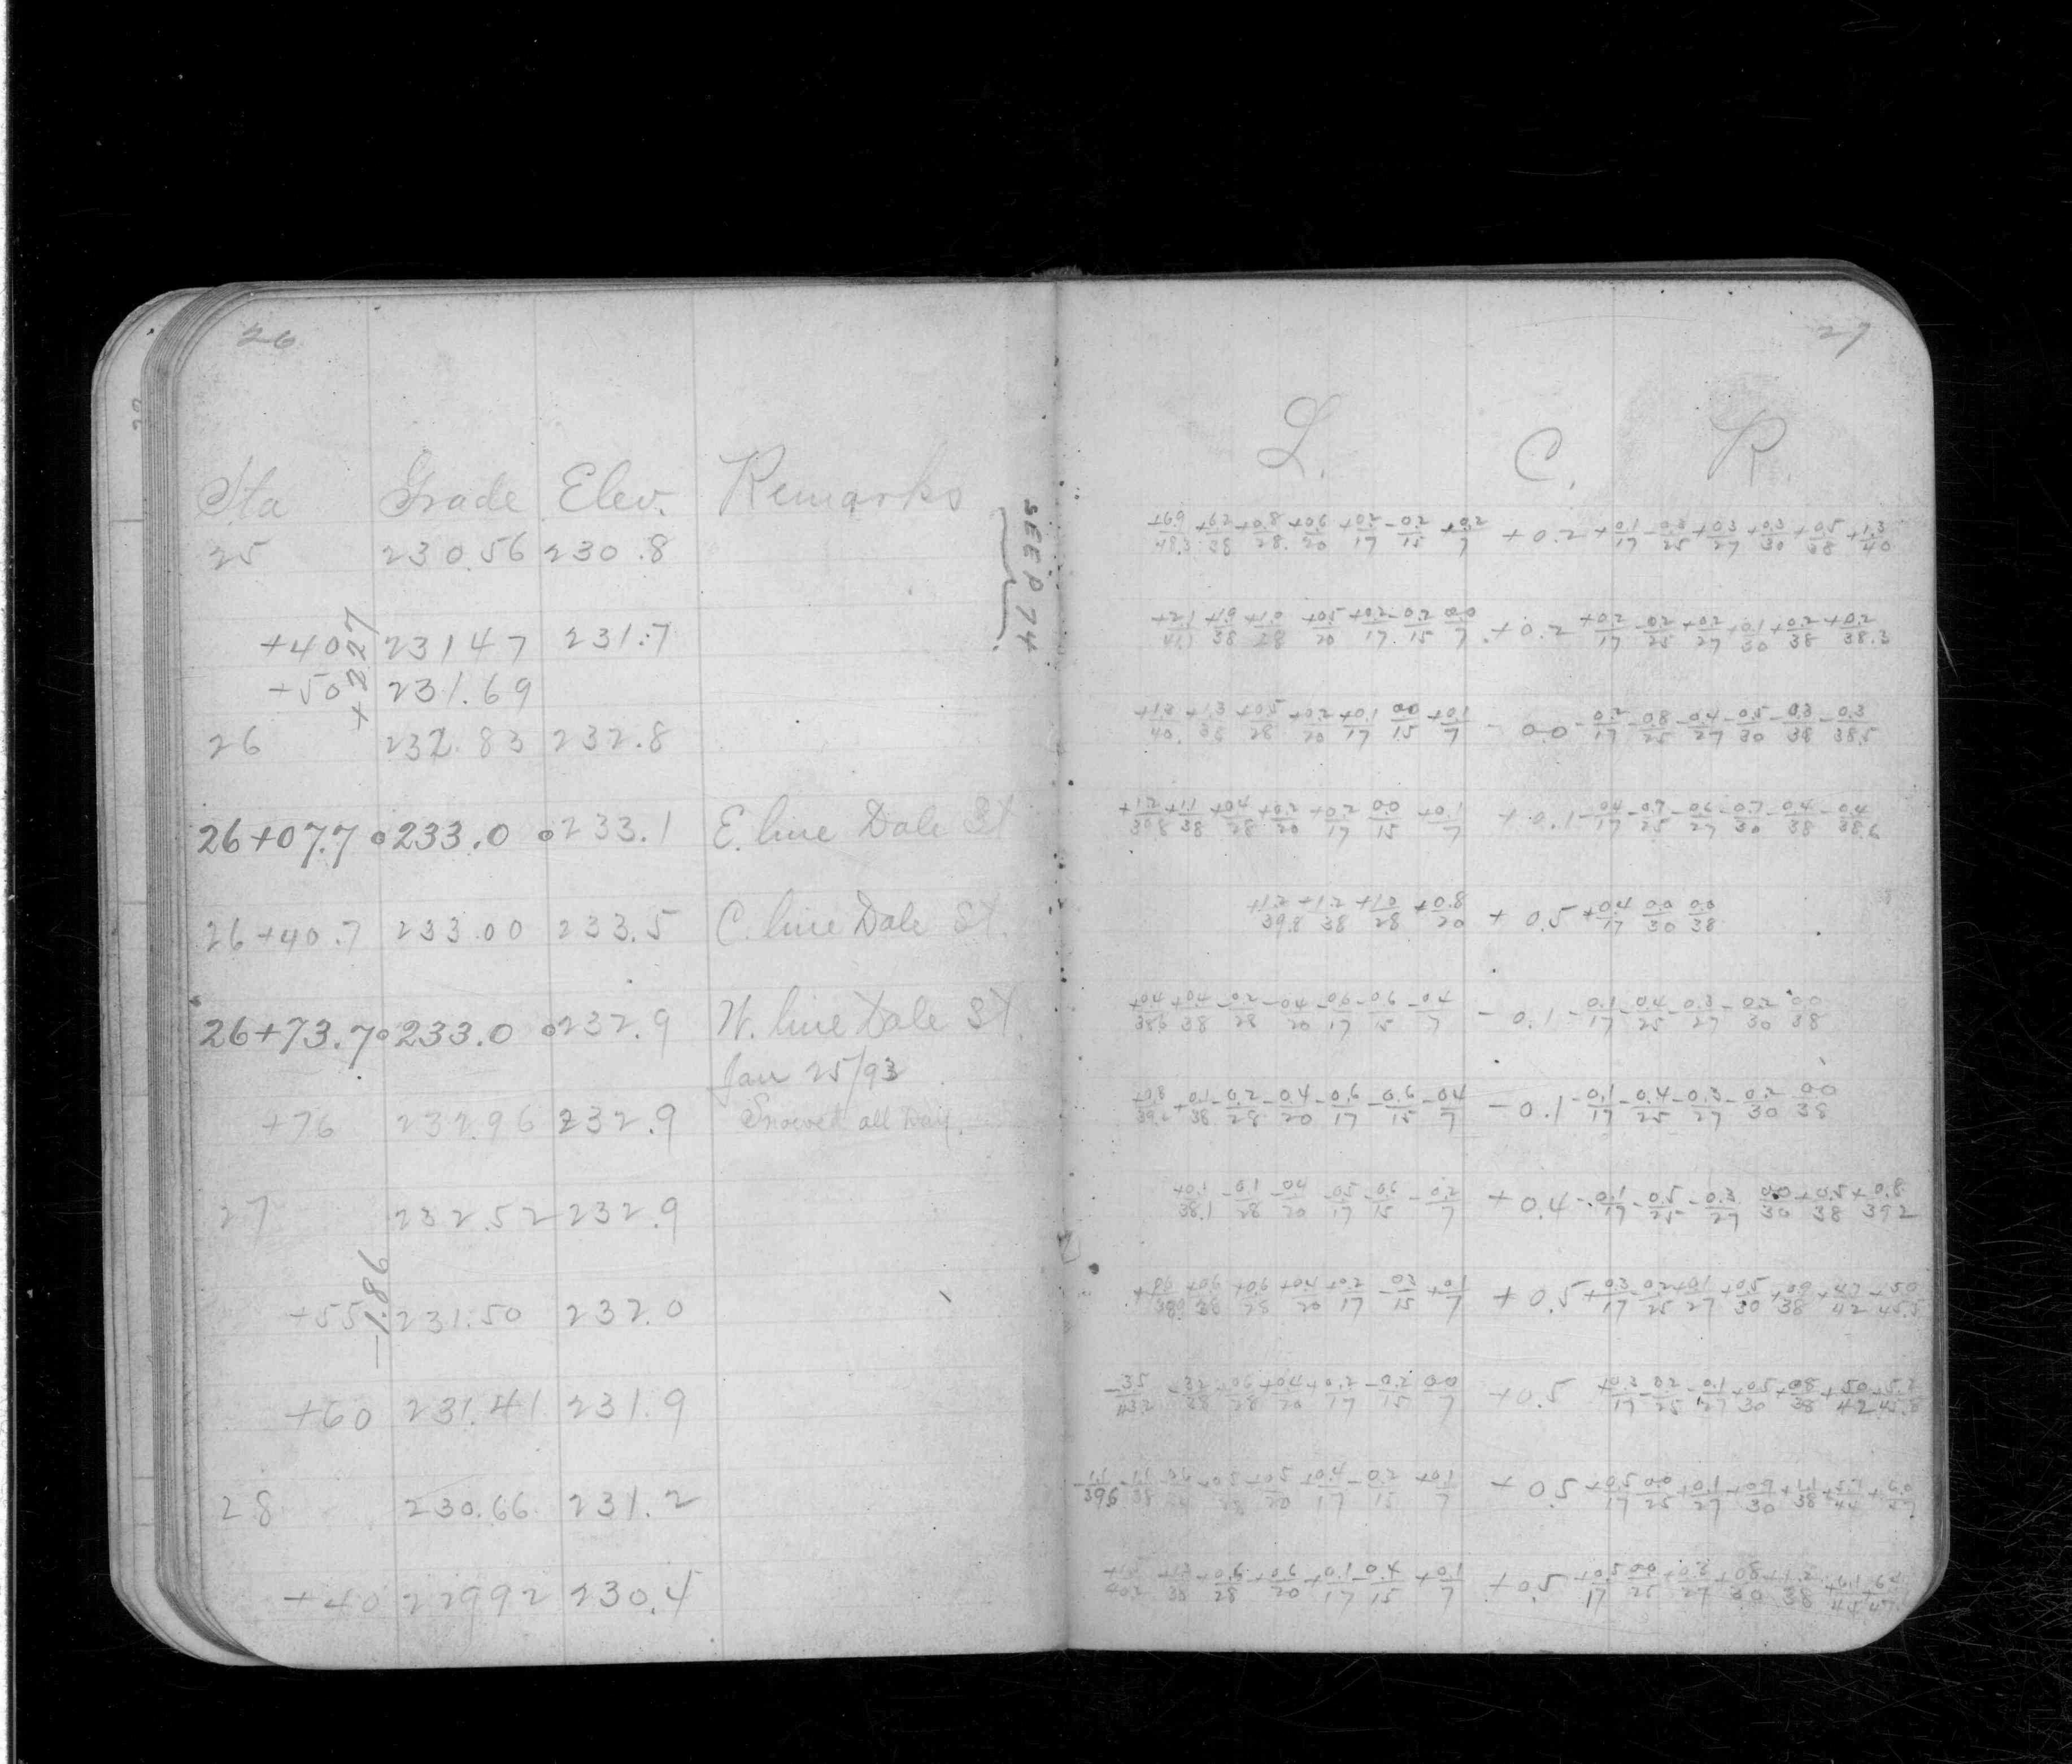 26
Sta Grade Elev. Remarks
SEE P 74
25 230.56 230.8
+40 231 47 231.7
+2.27
+50 231.69
26 232.83 232.8
26+07.7 233.0 233.1 E. line Dale St
26+40.7 233.00 233.5 C. line Dale St.
26+73.7 233.0 232.9 W. line Dale St.
Jan 25/93
+76 232.96 232.9 Snowed all Day.
27 232.52 232.9
-1.86
+55 231.50 232.0
+60 231.41 231.9
28 230.66 231.2
+40 229 92 230.4
27
L. C. R.
+6.9/48.3 +6.2/38 +0.8/28 +0.6/20 +0.2/17 -0.2/15 +0.2/7 +0.2 +0.1/17 -0.3/25 +0.3/27 +0.3/30 +0.5/38 +1.3/40
+2.1/41.1 +1.9/38 +1.0/28 +0.5/20 +0.2/17 -0.2/15 0.0/7 +0.2 +0.2/17 -0.2/25 +0.2/27 +0.1/30 +0.2/38 +0.2/38.3
+1.3/40 +1.3/38 +0.5/28 +0.2/20 +0.1/17 0.0/15 +0.1/7 - 0.0 -0.2/17 -0.8/25 -0.4/27 -0.5/30 -0.3/38 -0.3/38.5
+1.2/39.8 +1.1/38 +0.4/28 +0.2/20 +0.2/17 0.0/15 +0.1/7 +0.1 -0.4/17 -0.7/25 -0.6/27 -0.7/30 -0.4/38 -0.4/38.6
+1.2/39.8 +1.2/38 +1.0/28 +0.8/20 +0.5 +0.4/17 0.0/30 0.0/38
+0.4/38.6 +0.4/38 -0.2/28 -0.4/20 -0.6/17 -0.6/15 -0.4/7 -0.1 -0.1/17 -0.4/25 -0.3/27 -0.2/30 0.0/38
+0.8/39.2 +0.1/38 -0.2/28 -0.4/20 -0.6/17 -0.6/15 -0.4/7 -0.1 -0.1/17 -0.4/25 -0.3/27 -0.2/30 0.0/38
+0.1/38.1 -0.1/28 -0.4/20 -0.5/17 -0.6/15 -0.2/7 +0.4 -0.1/17 -0.5/25 -0.3/27 0.0/30 +0.5/38 +0.8/39.2
+0.6/38 +0.6/28 +0.4/20 +0.2/17 -0.3/15 +0.1/7 +0.5 +0.3/17 -0.2/25 +0.1/27 +0.5/30 +0.9/38 +4.7/42 +5.0/45.5
-3.5/43.2 -3.2/38 +0.6/28 +0.4/20 +0.2/17 -0.2/15 0.0/7 +0.5 +0.3/17 -0.2/25 -0.1/27 +0.5/30 +0.8/38 +5.0/42 +5.2/45.8
+0.5/20 +0.4/17 -0.2/15 +0.1/7 +0.5 +0.5/17 0.0/25 +0.1/27 +0.9/30 +1.1/38 +6.0/47
+0.6/28 +0.6/20 +0.1/17 -0.4/15 +0.1/7 +0.5 +0.5/17 0.0/25 +0.8/30 +1.2/38